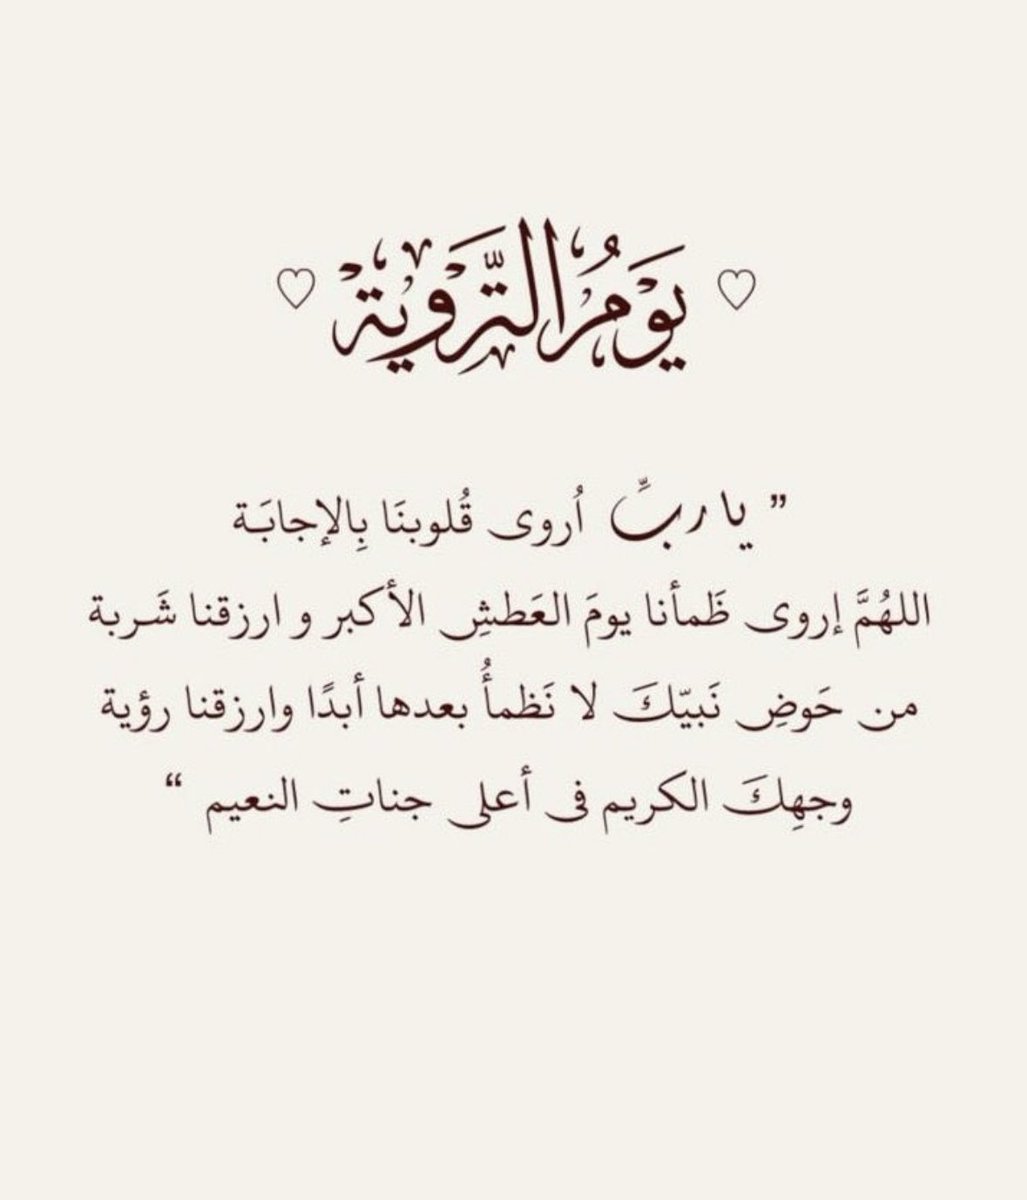 ♡ يَوْمُ التَّرْوْيَة ♡
” يا ربِّ اُروى قُلوبنَا بِالإجابَـة
اللهُمَّ إروى ظَمأنا يومَ العَطشِ الأكبر و ارزقنا شَـربة
من حَوضِ نَبيّكَ لا نَظمأُ بعدها أبدًا وارزقنا رؤية
وجهِكَ الكريم فى أعلى جناتِ النعيم “